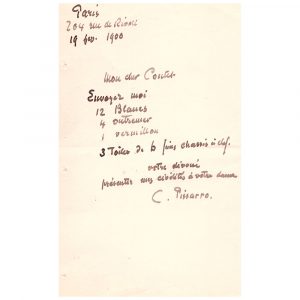 Paris
204 rue de Rivoli
19 fev. 1900
Mon cher Contet
Envoyez moi
12 Blancs
4 outremer
1 vermillon
3 Toiles de 6 fins chassis à clef.
votre dévoué
présentez mes civilités à votre dame
C. Pissarro.